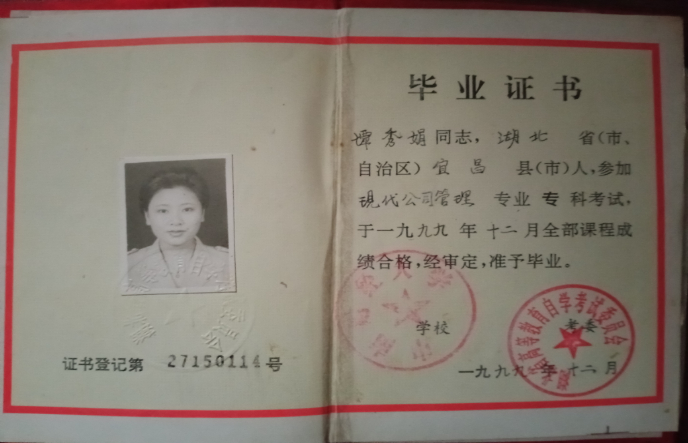 证书登记第 27150114 号
毕业证书
谭秀娟同志，湖北 省(市、
自治区)宜昌 县(市)人，参加
现代公司管理 专业 专 科考试，
于一九九九年十二月全部课程成
绩合格，经审定，准予毕业。
学校 考委
高等教育自学考试委员会
一九九九年十二月